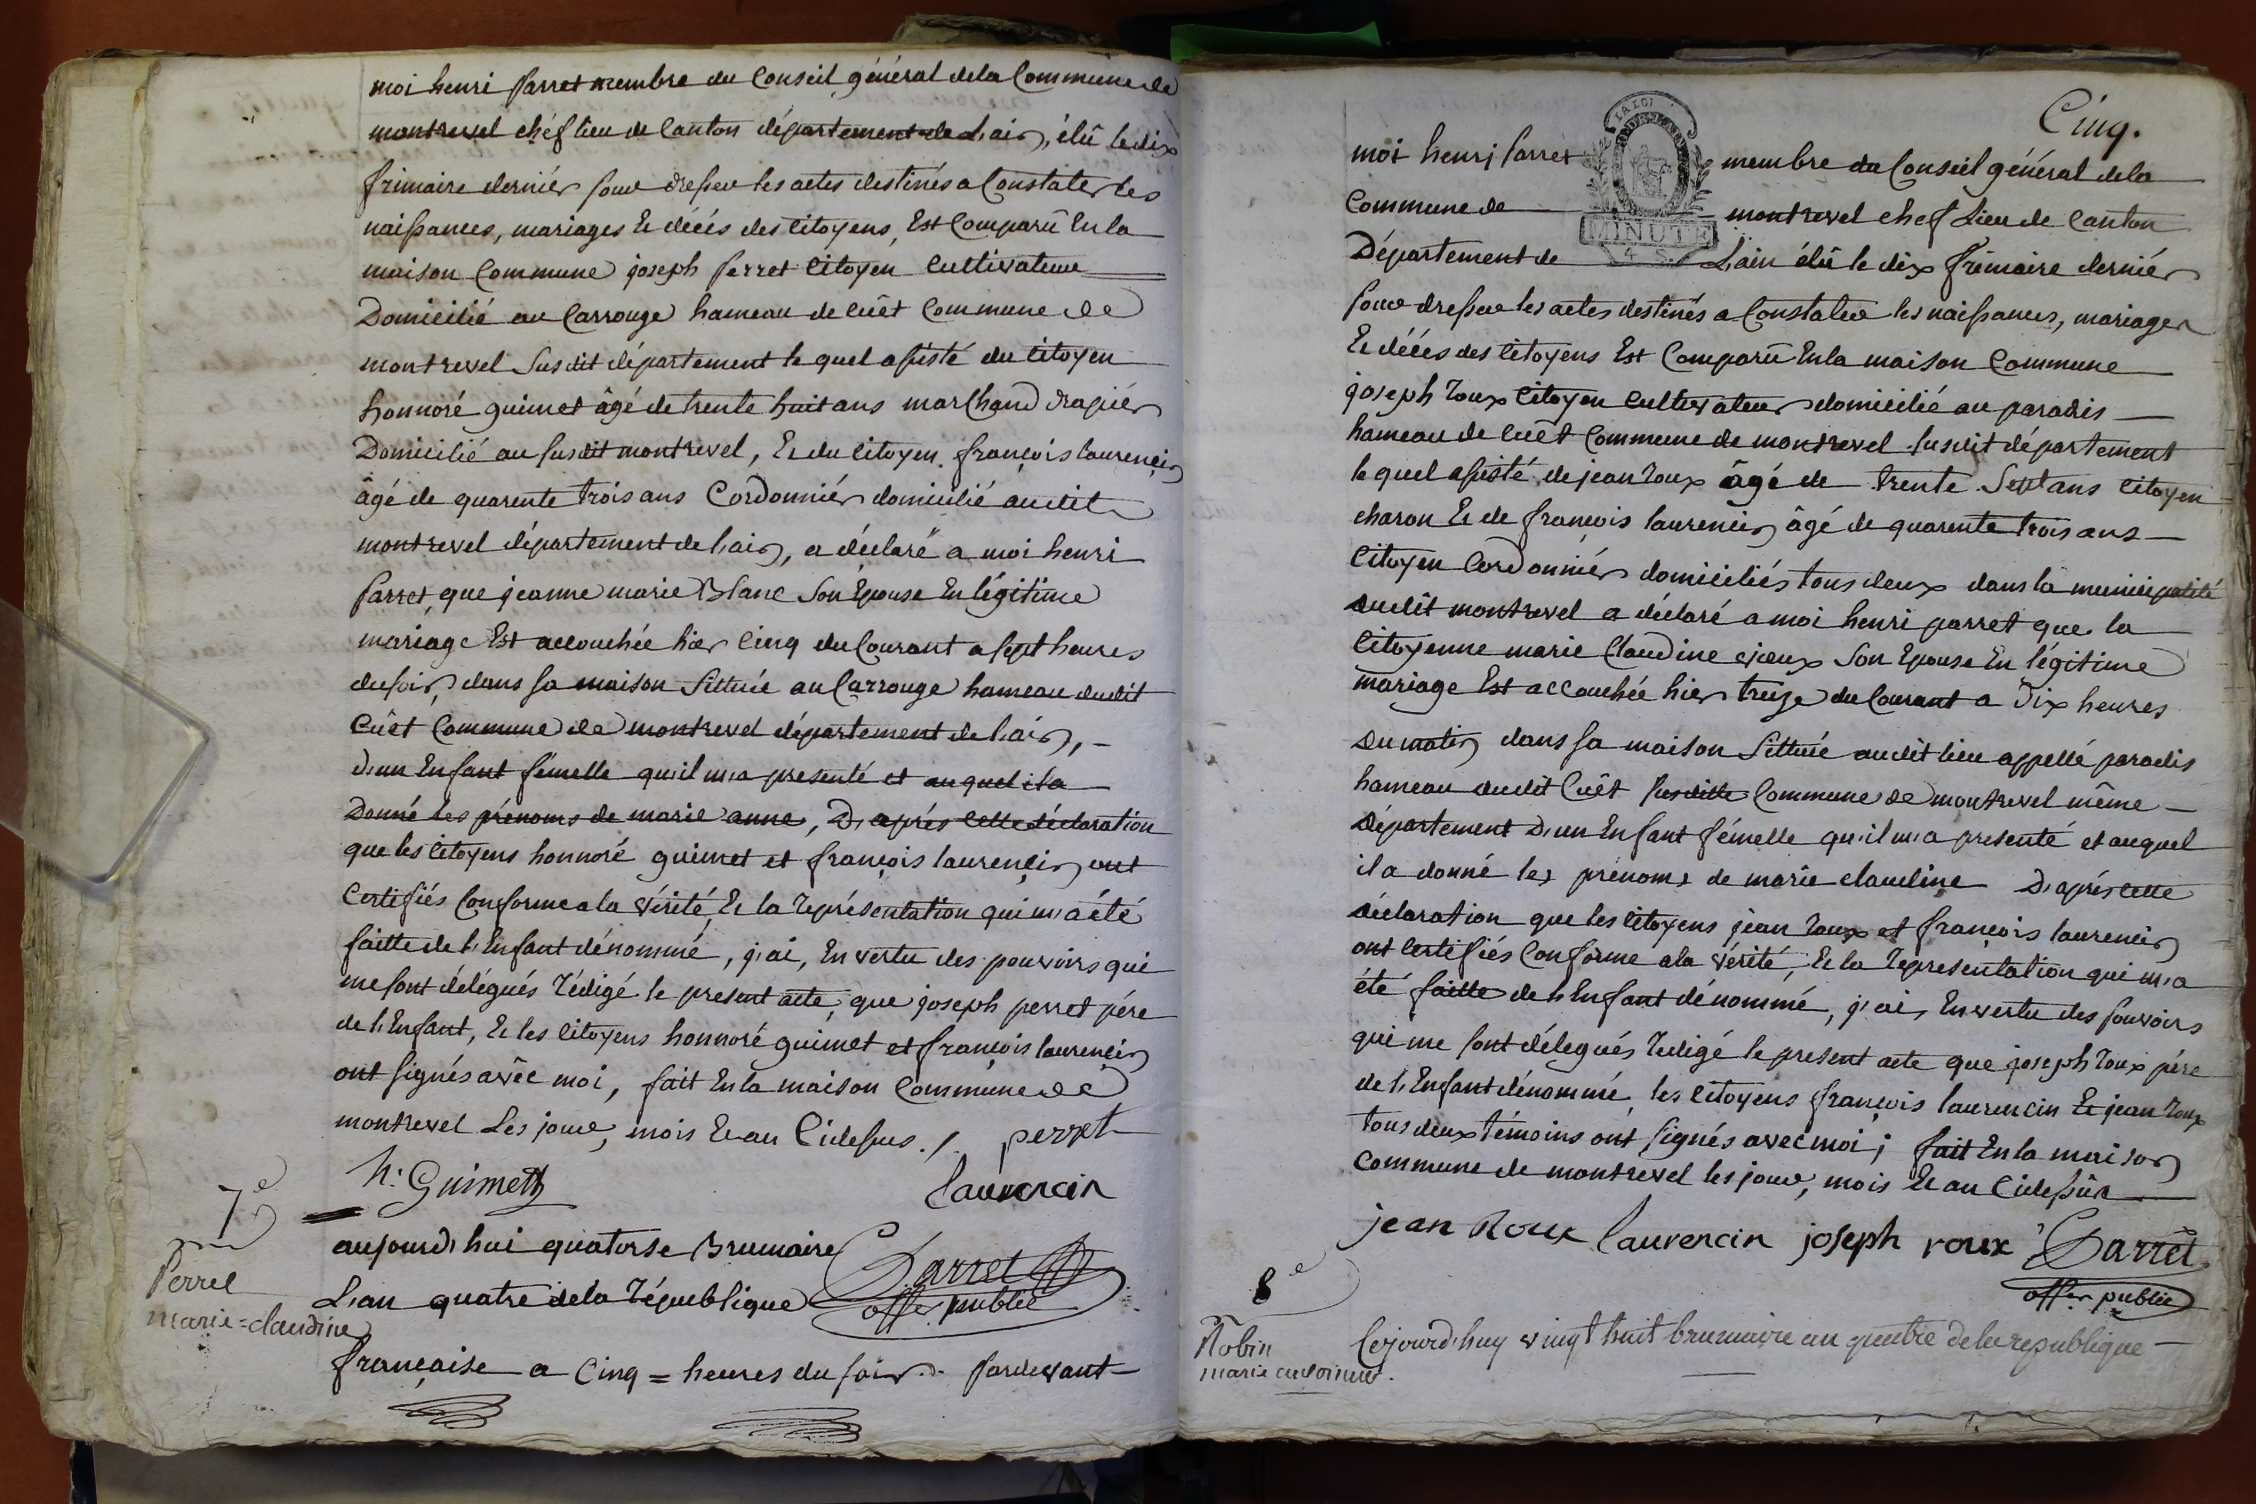 moi henri parret membre du Conseil général dela Commune de
montrevel chéf lieu de Canton département de L'ain, élû le dix
frimaire derniér pour dresser les actes destinés a Constater les
naissances, mariages Et décés des Citoyens, Est Comparû En la
maison Commune joseph perret Citoyen Cultivateur
Domicilié au Carrouge hameau de Cuêt Commune de
montrevel Susdit département le quel assisté du Citoyen
honnoré guimet âgé de trente huit ans marChand drapiér
Domicilié au susdit montrevel, Et du Citoyen françois laurençin
âgé de quarente trois ans Cordonniér domicilié audit
montrevel département de l'ain, a déclaré a moi henri
parret, que jeanne marie Blanc Son Epouse En légitime
mariage Est accouchée hier Cinq du Courant a sept heures
du soir, dans sa maison Sittuée au Carrouge hameau dudit
Cuêt Commune de montrevel département de l'ain,
d'un Enfant fémelle qu'il m'a presenté et auquel il a
Donné les prénoms de marie anne, D'aprés cette déclaration
que les Citoyens honnoré guimet et françois laurençin ont
Certifiés Conforme a la vérité, Et la représentation qui m'a été
faitte de l'Enfant dénommé, j'ai, En vertu des pouvoirs qui
me sont délégués rédigé le present acte, que joseph perret pére
de l'Enfant, Et les Citoyens honnoré guimet et françois laurencin
ont signés avêc moi, fait En la maison Commune de
montrevel Les jour, mois Et an Cidessus ./. perret
h: Guimet laurencin
7e
Perret
marie=claudine
aujourd'hui quatorse Brumaire
L'an quatre dela république
Parret
offer public
française a Cinq = heures du soir pardevant
Cinq.
LA LOI
MINUTE
4 S.
moi henri parret membre du Conseil général dela
Commune de montrevel chef Lieu de Canton
Département de L'ain élû le dix frimaire derniér
pour dresser les actes destinés a Constater les naissances, mariages
Et décés des Citoyens Est Comparû En la maison Commune
joseph roux Citoyen Cultivateur domicilié au paradis
hameau de Cuêt Commune de montrevel susdit département
le quel assisté de jean roux âgé de trente Sept ans Citoyen
charon Et de françois laurencin âgé de quarente trois ans
Citoyen Cordonniér domiciliés tous deux dans la municipalité
dudit montrevel a déclaré a moi henri parret que la
Citoyenne marie Claudine Son Epouse En légitime
mariage Est accouchée hier treize du Courant a Dix heures
Du matin dans sa maison Sittuée audit lieu appellé paradis
hameau dudit Cuêt susditte Commune de montrevel même
Département D'un Enfant fémelle qu'il m'a presenté et auquel
il a donné les prénoms de marie claudine D'aprés cette
déclaration que les Citoyens jean roux et françois laurencin
ont Certifiés Conforme a la vérité, Et la representation qui m'a
été faitte de l'Enfant dénommé, j'ai, En vertu des pouvoirs
qui me sont délegués redigé le present acte que joseph roux pére
de l'Enfant dénommé, les Citoyens françois laurencin Et jean roux
tous deux témoins ont signés avec moi; fait En la maison
Commune de montrevel les jour, mois Et an Cidessûs
jean Roux laurencin joseph roux Parret
offer public
8e
Robin
marie
Cejourd'huy vingt huit brumaire an quatre de la republique